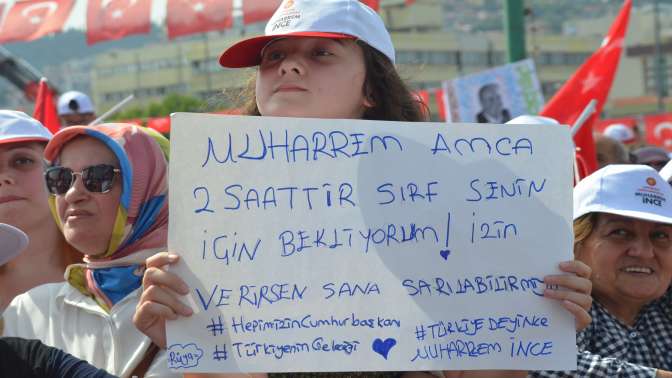 MUHARREM
İNCE
MUHARREM
İNCE
MUHARREM AMCA
2 SAATTİR SIRF SENİN
İÇİN BEKLİYORUM! İZİN
VERİRSEN SANA SARILABİLİRMİ
#HepimizinCumhurbaşkanı
#TürkiyeninGeleceği
Rüya
#TÜRKİYEDEYİNCE
MUHARREM İNCE